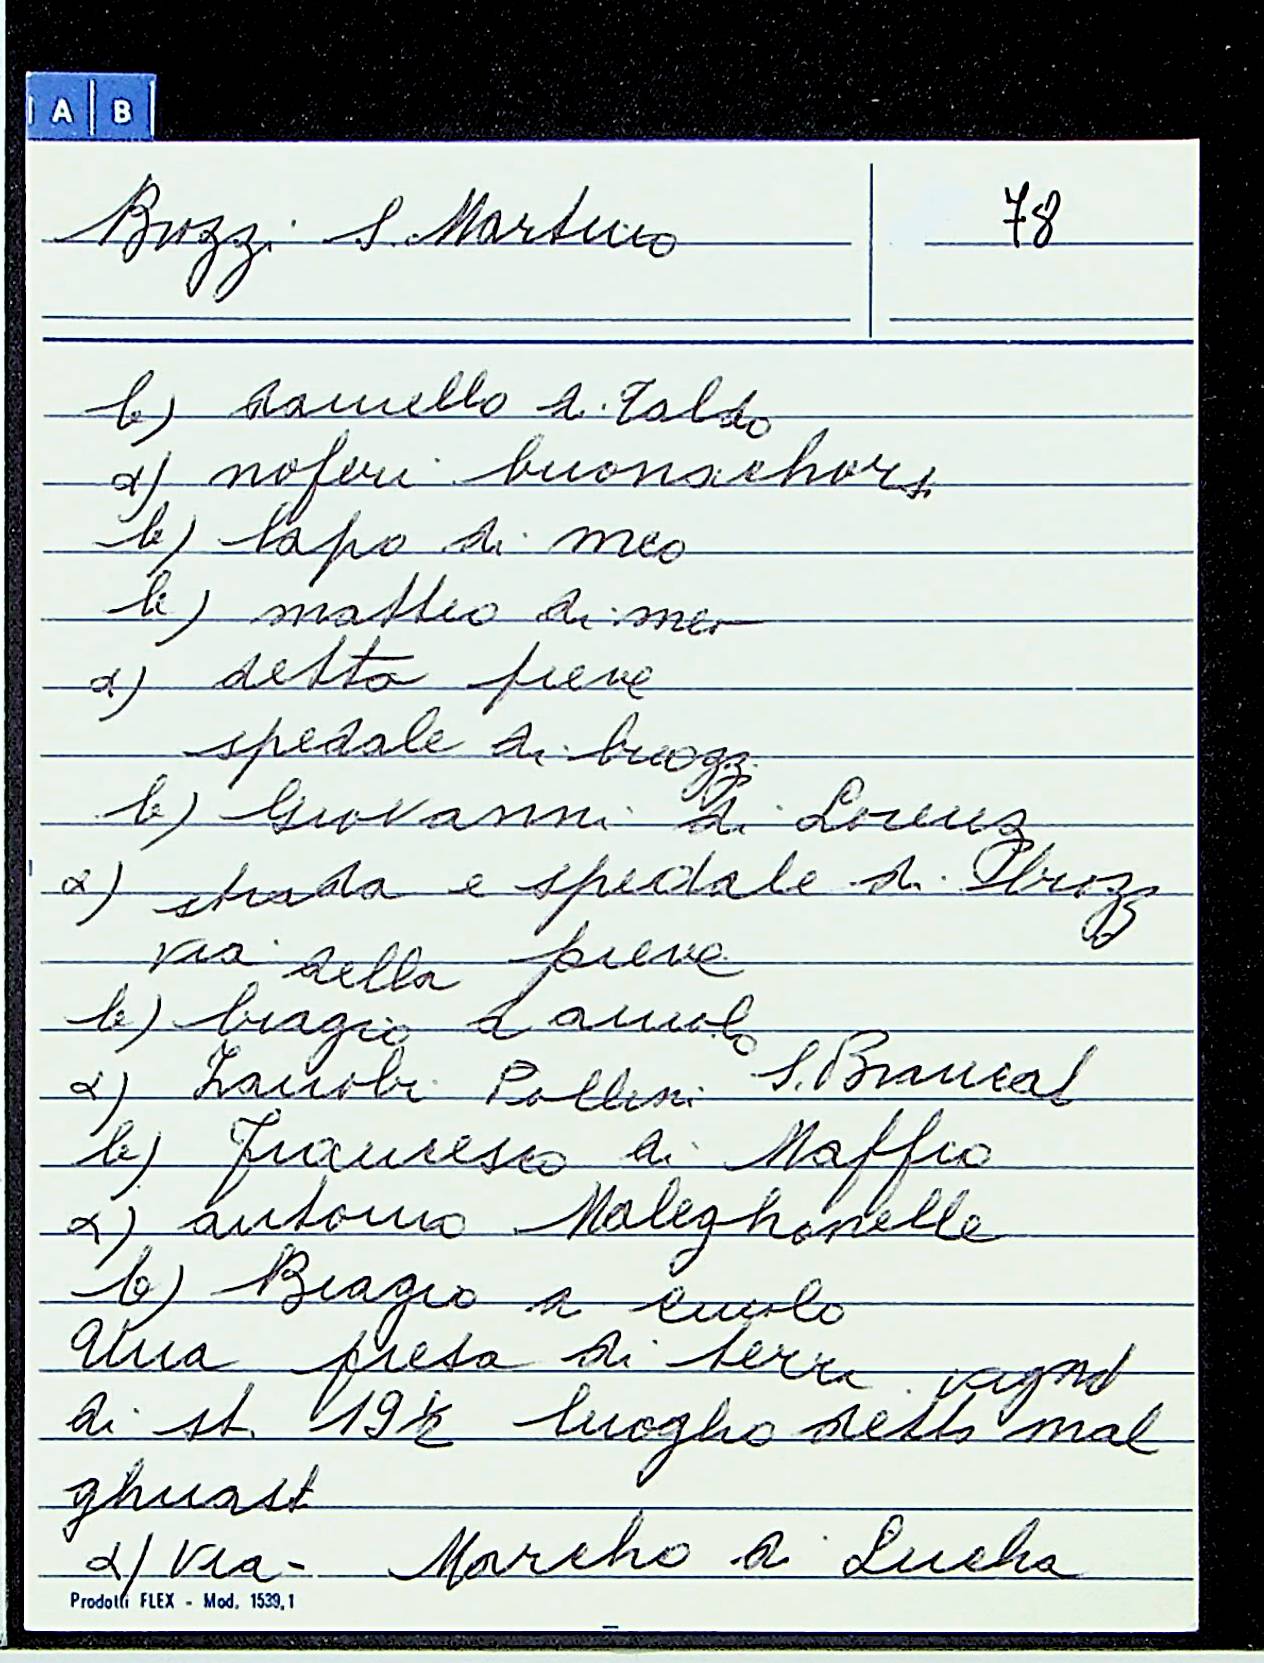 A B
Brozzi S. Martino
78
b) daniello di Taldo
a) noferi buonachorsi
b) lapo di meo
b) matteo di meo
a) detta pieve
spedale di brozzi
b) Giovanni di Lorenz
a) strada e spedale di Brozz
via della pieve
b) biagio d
a) Zanobi Pollini S. Brancat
b) Francesco di Maffio
a) antonio Maleghonelle
b) Biagio
Una presa di terra vignd
di st. 19½ luogho detto mal
ghuast
a) via - Marcho di Lucha
Prodotti FLEX - Mod. 1539,1